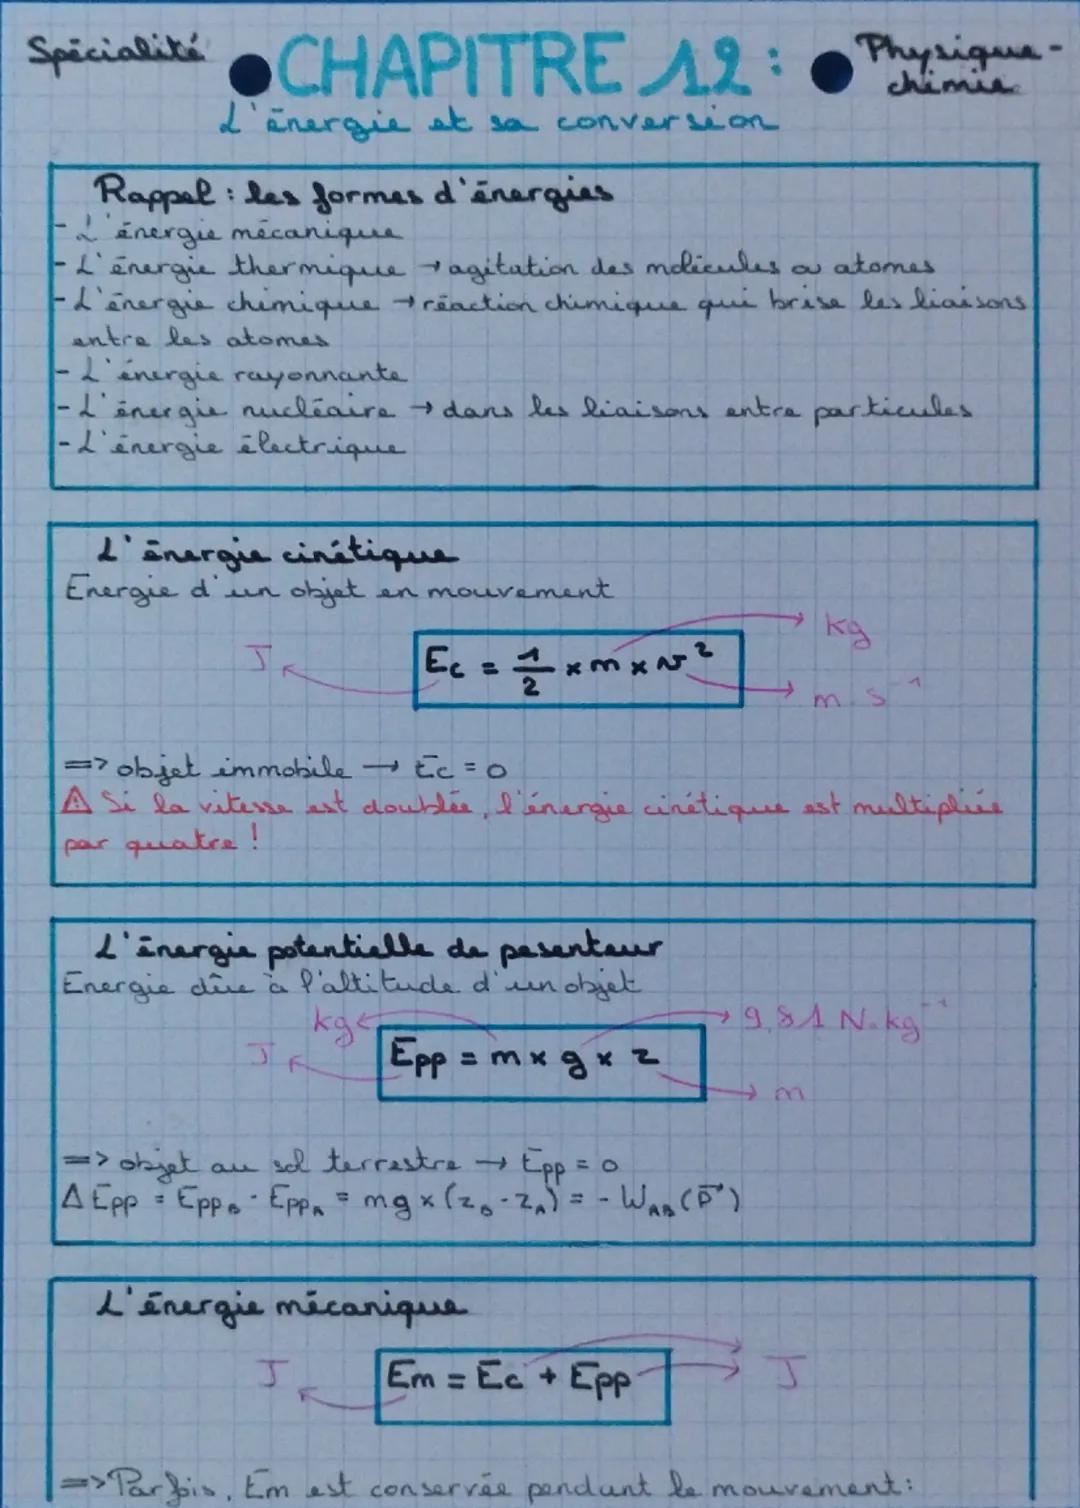 Spécialité
● CHAPITRE 12 : ●
Physique-
chimie
L'énergie et sa conversion
Rappel : les formes d'énergies
- L'énergie mécanique
- L'énergie thermique → agitation des molécules ou atomes
- L'énergie chimique → réaction chimique qui brise les liaisons
entre les atomes
- L'énergie rayonnante
- L'énergie nucléaire → dans les liaisons entre particules
- L'énergie électrique
L'énergie cinétique
Energie d'un objet en mouvement
kg
J
Ec = 1/2 × m × v²
m.s⁻¹
=> objet immobile → Ec = 0
⚠ Si la vitesse est doublée, l'énergie cinétique est multipliée
par quatre !
L'énergie potentielle de pesenteur
Energie dûe à l'altitude d'un objet
kg
9,81 N.kg⁻¹
J
Epp = m × g × z
m
=> objet au sol terrestre → Epp = 0
Δ Epp = Epp_B - Epp_A = mg × (z_B - z_A) = - W_AB (P⃗)
L'énergie mécanique
J
Em = Ec + Epp
J
=> Parfois, Em est conservée pendant le mouvement :